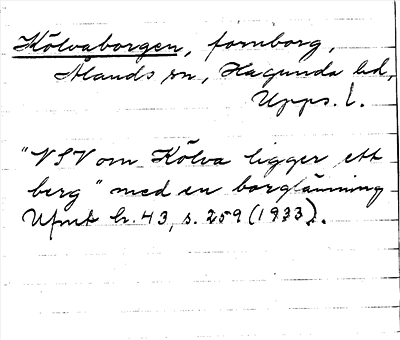 Kölvaborgen, fornborg,
Ålands sn, Hagunda hd,
Upps. l.
"NSV om Kölva ligger ett
berg" med en borglämning
Ufmt h. 43, s. 259 (1933).